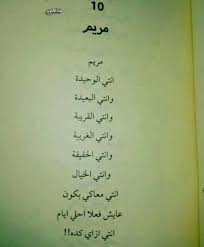 10
مريم
مريم
انتي الوحيدة
وانتي البعيدة
وانتي القريبة
وانتي الغريبة
وانتي الحقيقة
وانتي الخيال
انتي معاكي بكون
عايش فعلا احلي ايام
انتي ازاي كده!!